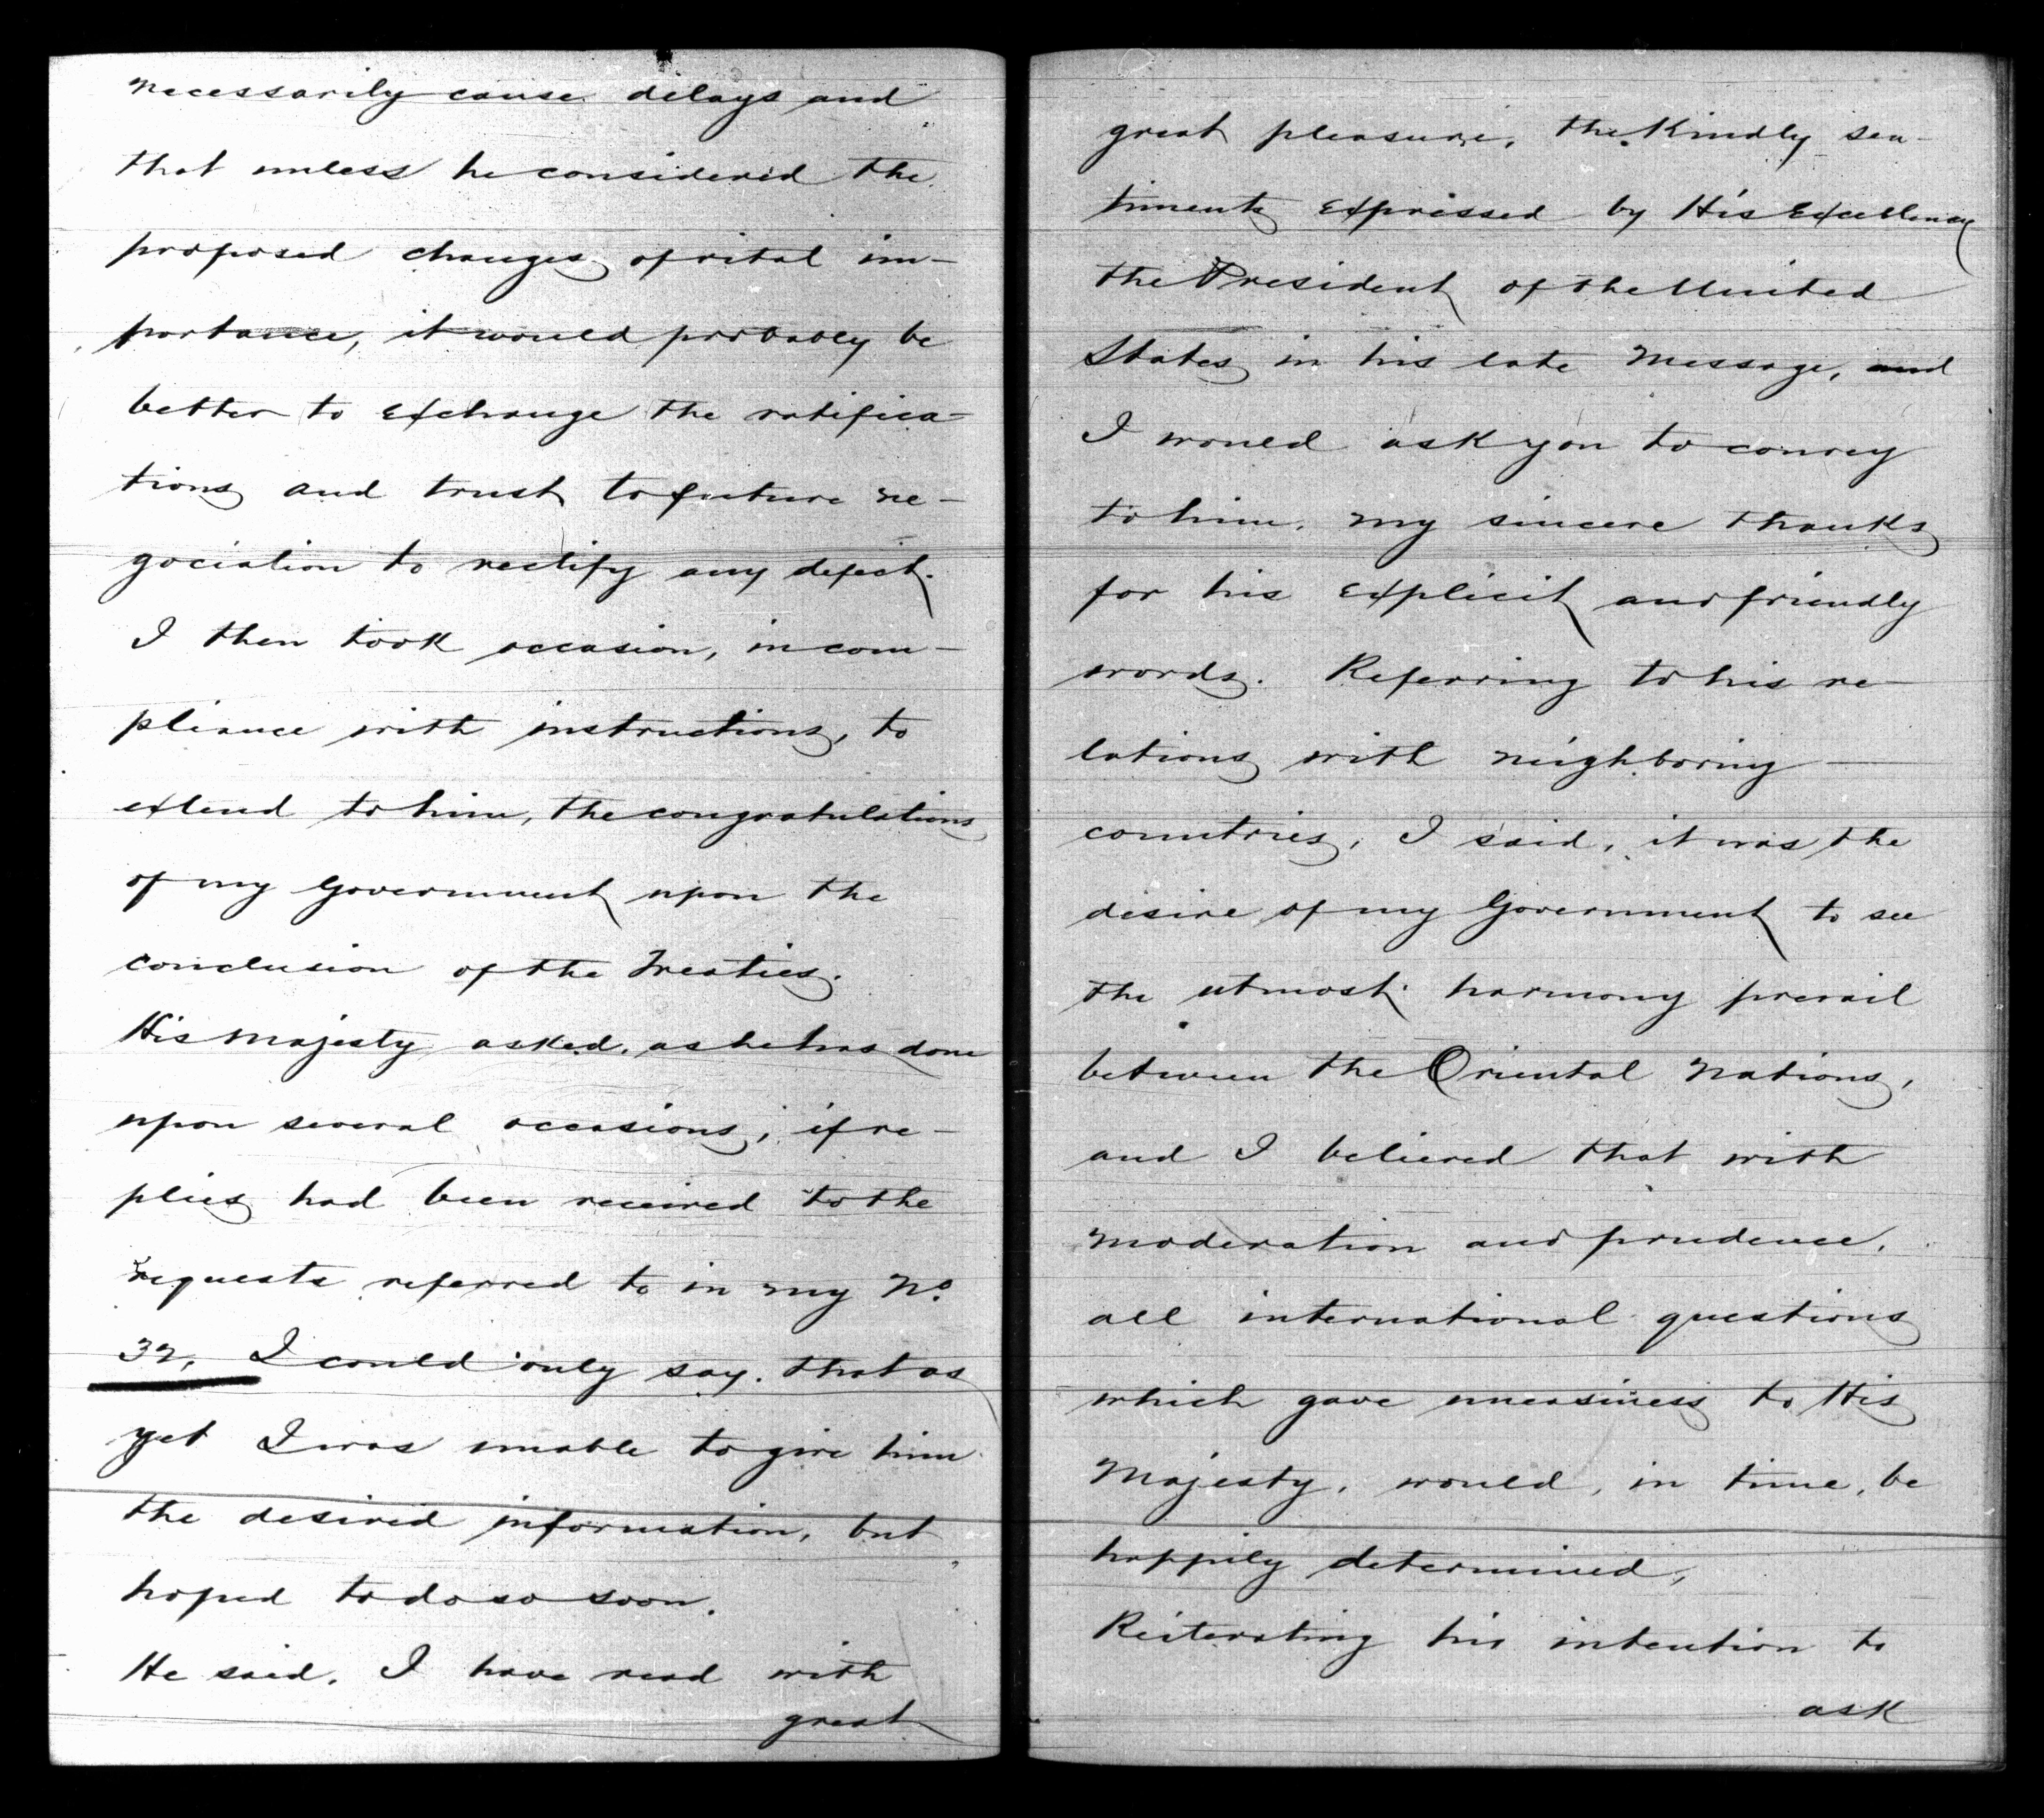 necessarily cause delays and
that unless he considered the
proposed changes of vital im-
portance, it would probably be
better to exchange the ratifica-
tions and trust to future ne-
gociation to rectify any defect.
I then took occasion, in com-
pliance with instructions, to
extend to him, the congratulations
of my Government upon the
conclusion of the Treaties.
His Majesty asked, as he has done
upon several occasions, if re-
plies had been received to the
requests referred to in my No.
32, I could only say, that as
yet I was unable to give him
the desired information, but
hoped to do so soon.
He said, I have read with
great
great pleasure, the Kindly sen-
timents expressed by His Excellency
the President of the United
States in his late Message, and
I would ask you to convey
to him, my sincere thanks
for his explicit and friendly
words. Referring to his re-
lations with neighboring
countries, I said, it was the
desire of my Government to see
the utmost harmony prevail
between the Oriental Nations,
and I believed that with
moderation and prudence,
all international questions
which gave uneasiness to His
Majesty, would, in time, be
happily determined,
Reiterating his intention to
ask